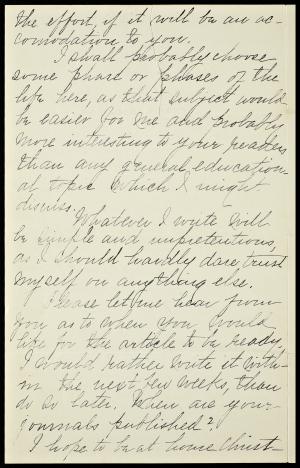 the effort, if it will be an ac-
comodation to you.
I shall probably choose
some phase or phases of the
life here, as that subject would
be easier for me and probably
more interesting to your readers
than any general education-
al topic which I might
discuss.
Whatever I write will
be simple and unpretentious,
as I should hardly dare trust
myself on anything else.
Please let me hear from
you as to when you would
like for the article to be ready.
I would rather write it with-
in the next few weeks, than
do so later. When are your
journals published?
I hope to be at home Christ-